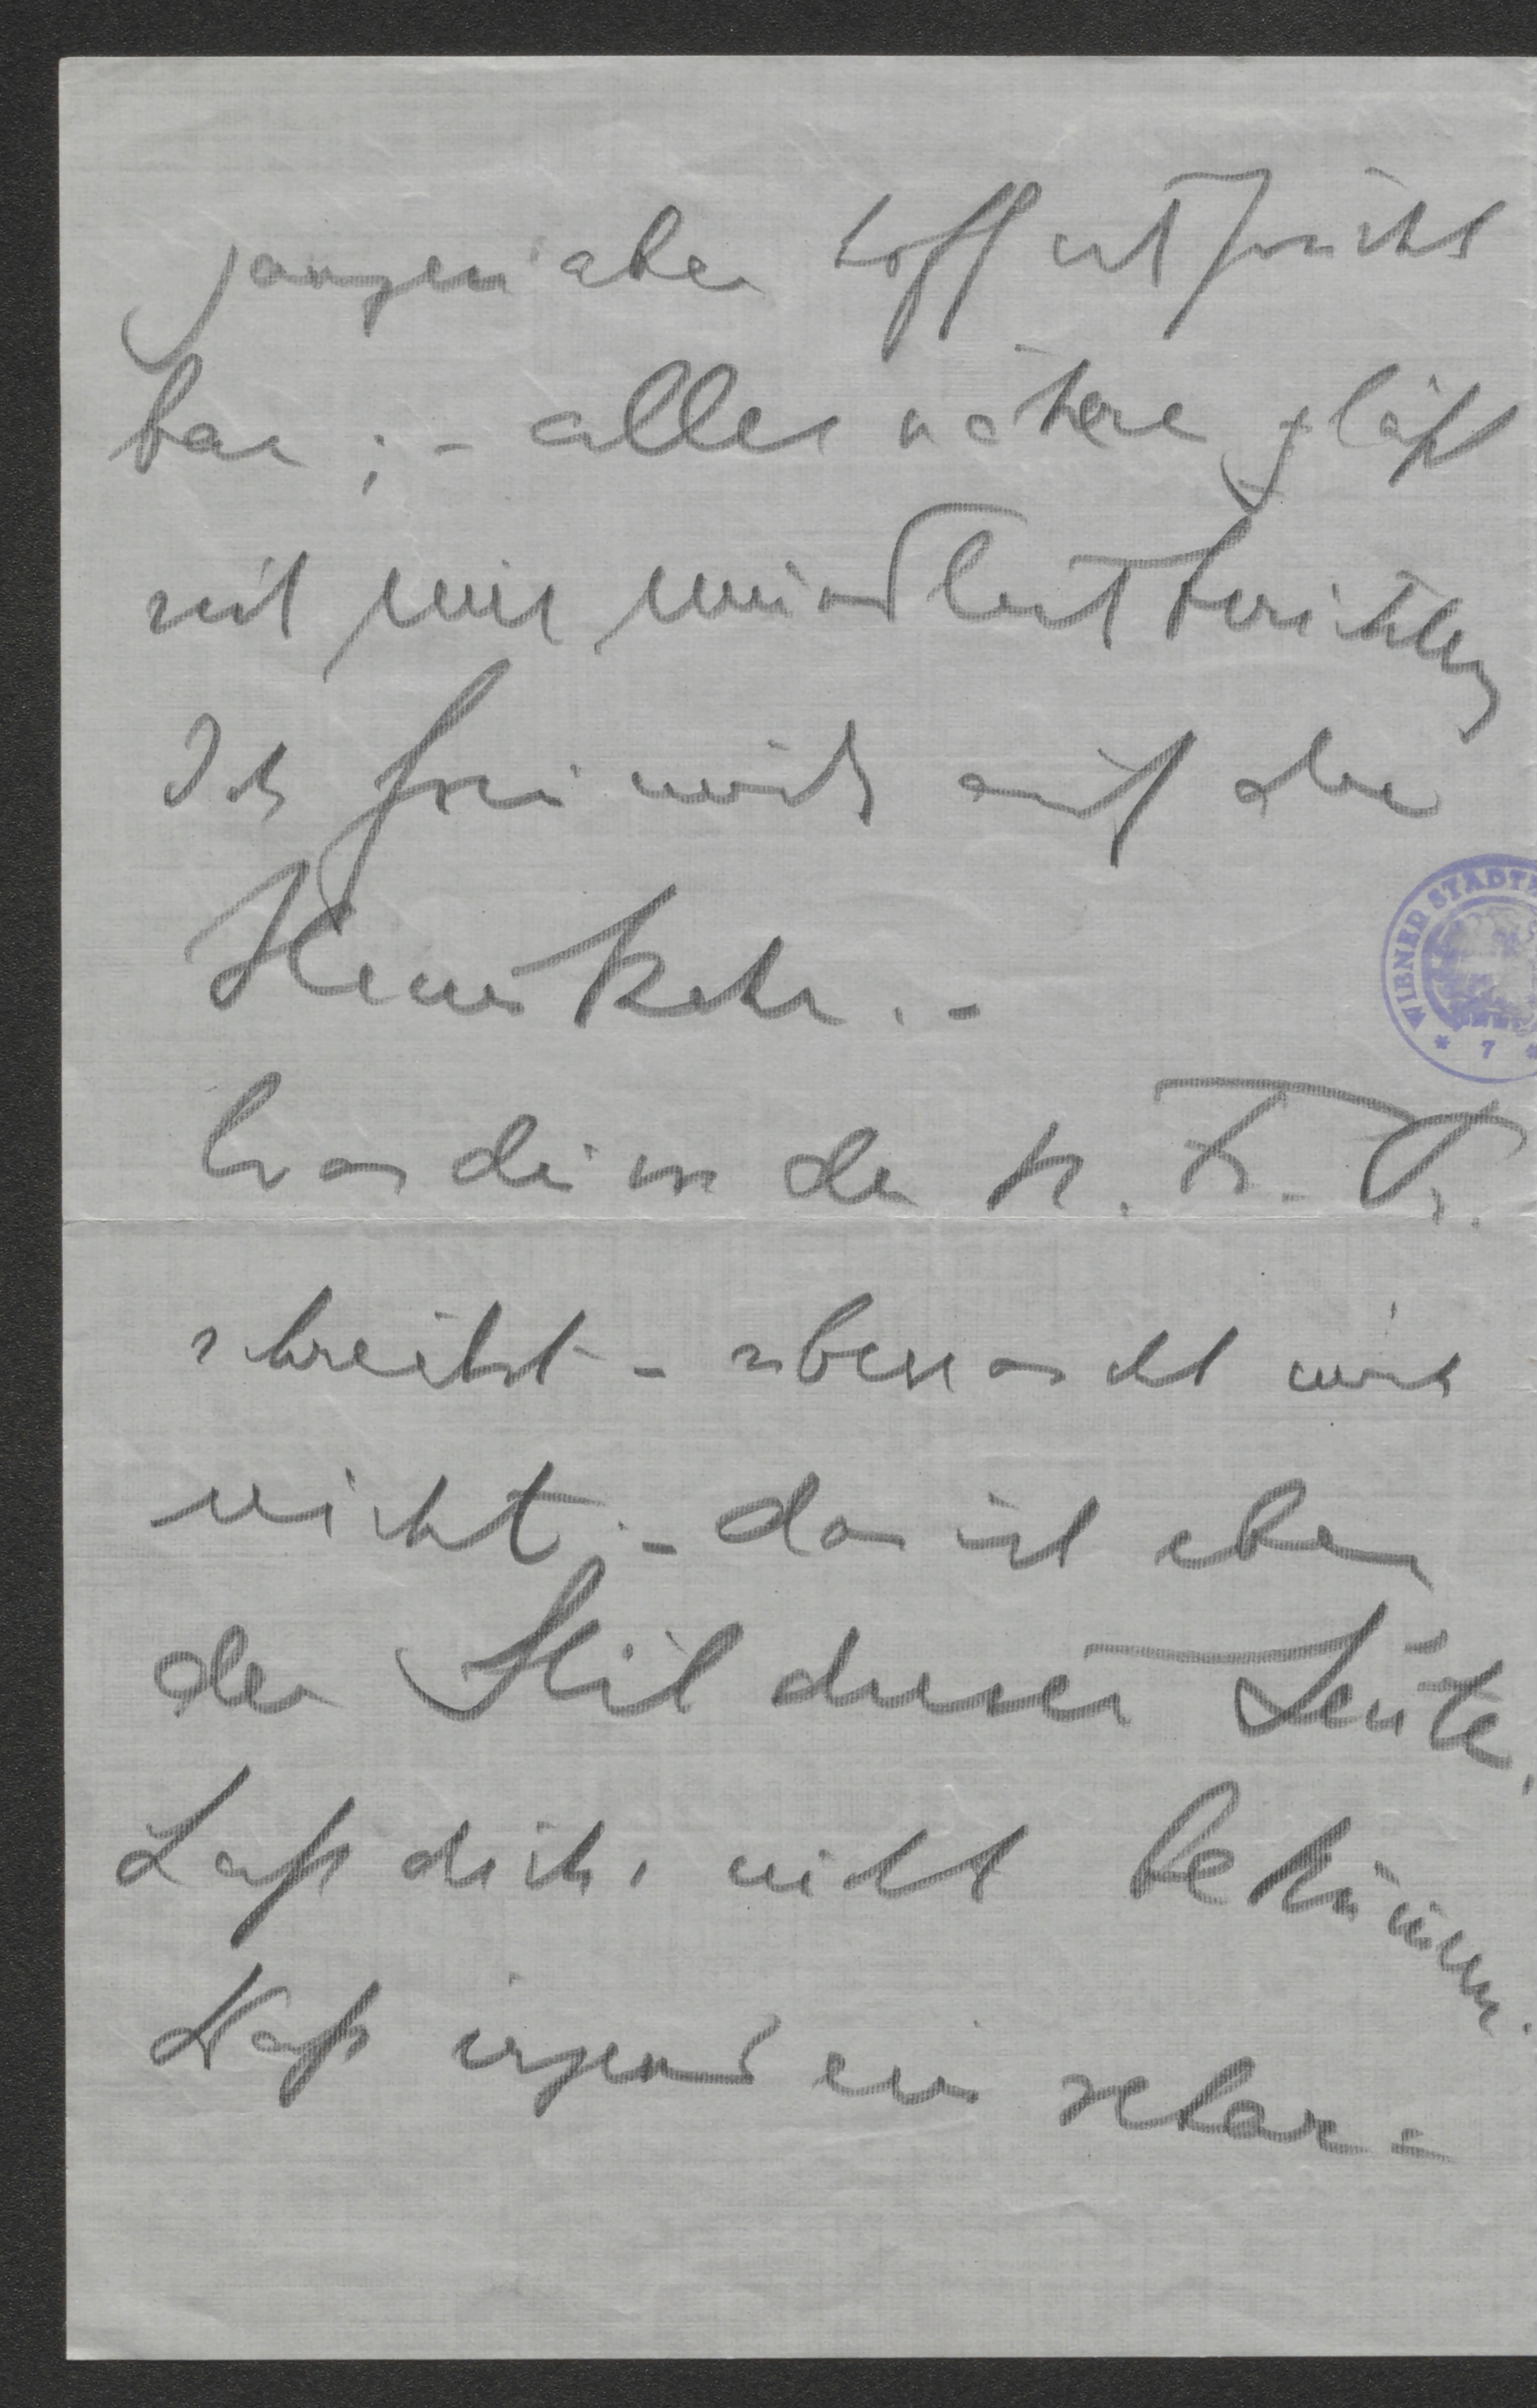 gangen aber hoffentl frucht
bar; – alles nähere läßt
sich nur mündlich berichten
Ich freu mich auf die
Heimkehr. –
Was du in der N. Fr. Pr.
schreibst – überrascht mich
nicht; – das ist eben
der Stil dieser Leute.
Laß dichs nicht bekümmern.
Daß irgend ein
WIENER STADT
* 7 *